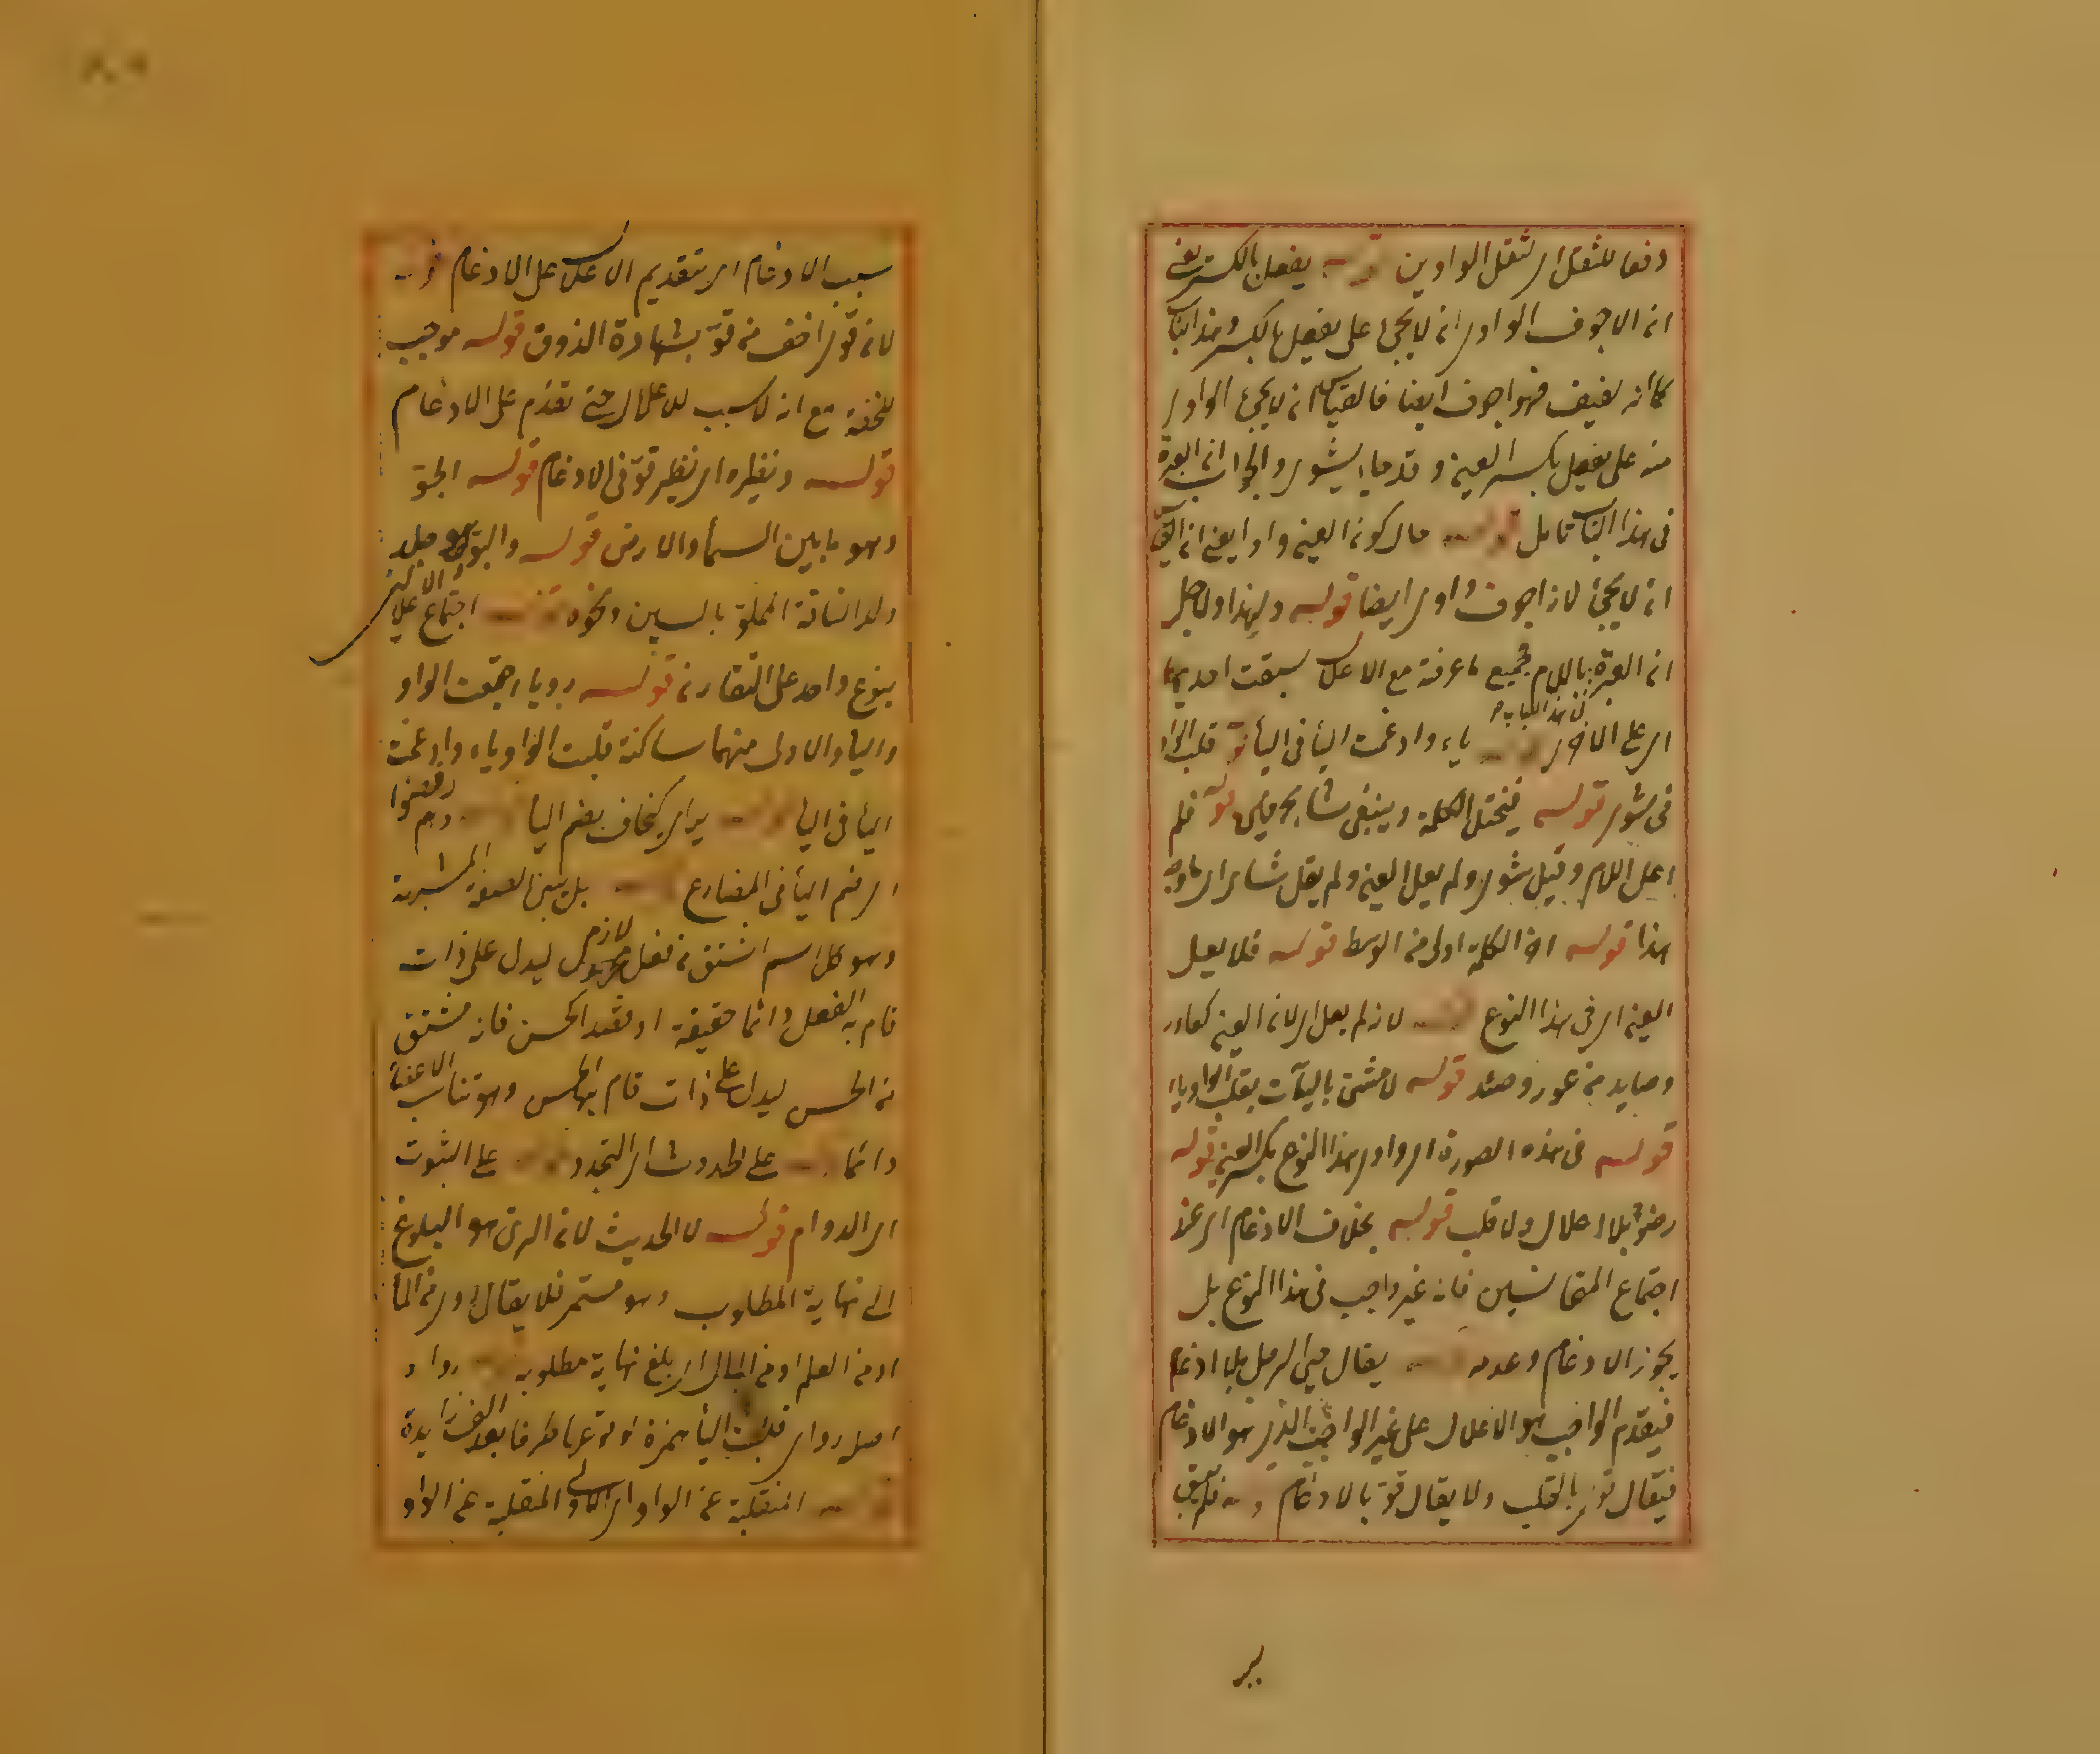 دفعا للثقل اى لثقل الواوين قوله يفعل بالكسر يعنى
ان الاجوف الواوى انه لا يجئ على يفعل بالكسر وهذا الباب
كما انه لفيف فهو اجوف ايضا فالقياس ان لا يجئ الواوى
منه على يفعل بكسر العين وقد جاء يشوى والجواب ان العبرة
فى هذا الباب تامل قوله حال كون العين واوا يعنى ان
ان لا يجئ لانه اجوف واوى ايضا قوله ولهذا ولاجل
ان العبرة باللام فى هذا الباب مع الاعلال سبقت احديهما
اى على الاخرى قوله ياء وادغمت اليأ فى اليأ قوله قلب الواو
فى شوى قوله فيختل الكلمة وينبغى شا بحرفين قوله فلم
اعل اللام وقيل شوى ولم يعل العين ولم يقل شاى اى
هذا قوله اخر الكلمة اولى من الوسط قوله فلا يعل
العين اى فى هذا النوع قوله لانه لم يعل اى لان العين كعاور
وصايد من عور وصيد قوله لا مشى باليآت بقلب الواو ياء
قوله فى هذه الصورة اى واوى هذا النوع بكسر العين قوله
رضوا بلا اعلال ولا قلب قوله بخلاف الادغام اى عند
اجتماع المتجانسين فانه غير واجب فى هذا النوع بل
يجوز الادغام وعدمه قوله يقال حيى الرجل بلا ادغام
فيقدم الواجب هو الاعلال على غير الواجب الذى هو الادغام
فيقال قوى بالقلب ولا يقال قو بالادغام قوله فلم يبق
سبب الادغام اى بتقديم الاعلال على الادغام قوله
لان قوى اخف من قو بشهادة الذوق قوله موجب
للخفة مع انه لا سبب للاعلال حتى تقدم على الادغام
قوله ونظيره اى نظير قو فى الادغام قوله الجو
وهو ما بين السمأ والارض قوله والبو هو جلد
ولد الناقة المملو بالسين ونحوه قوله اجتماع الاعلالين
بنوع واحد على التقارن قوله رويا اجتمعت الواو
واليأ والاولى منهما ساكنة قلبت الواو ياء وادغمت
اليأ فى اليأ قوله يراى كيخاف بضم اليأ قوله وهم رفضوا
اى ضم اليأ فى المضارع قوله بل يبنى الصفة المشبهة
وهو كل اسم اشتق من فعل لازم ليدل على ذات
قام به الفعل دائما حقيقة او تقديرا كحسن فانه مشتق
من الحسن ليدل على ذات قام بها الحسن وهو تناسب الاعضأ
دائما قوله على الحدوث اى التجدد قوله على الثبوت
اى الدوام قوله لا الحديث لان الرى هو البلوغ
الى نهاية المطلوب وهو مستمر فلا يقال روى من المأ
او من العلم او من المال اى بلغ نهاية مطلوبه قوله رواء
اصله رواى قلبت اليأ همزة لوقوعها طرفا بعد الف زايدة
قوله المنقلبة عن الواو اى الاولى المنقلبة عن الواو
ير